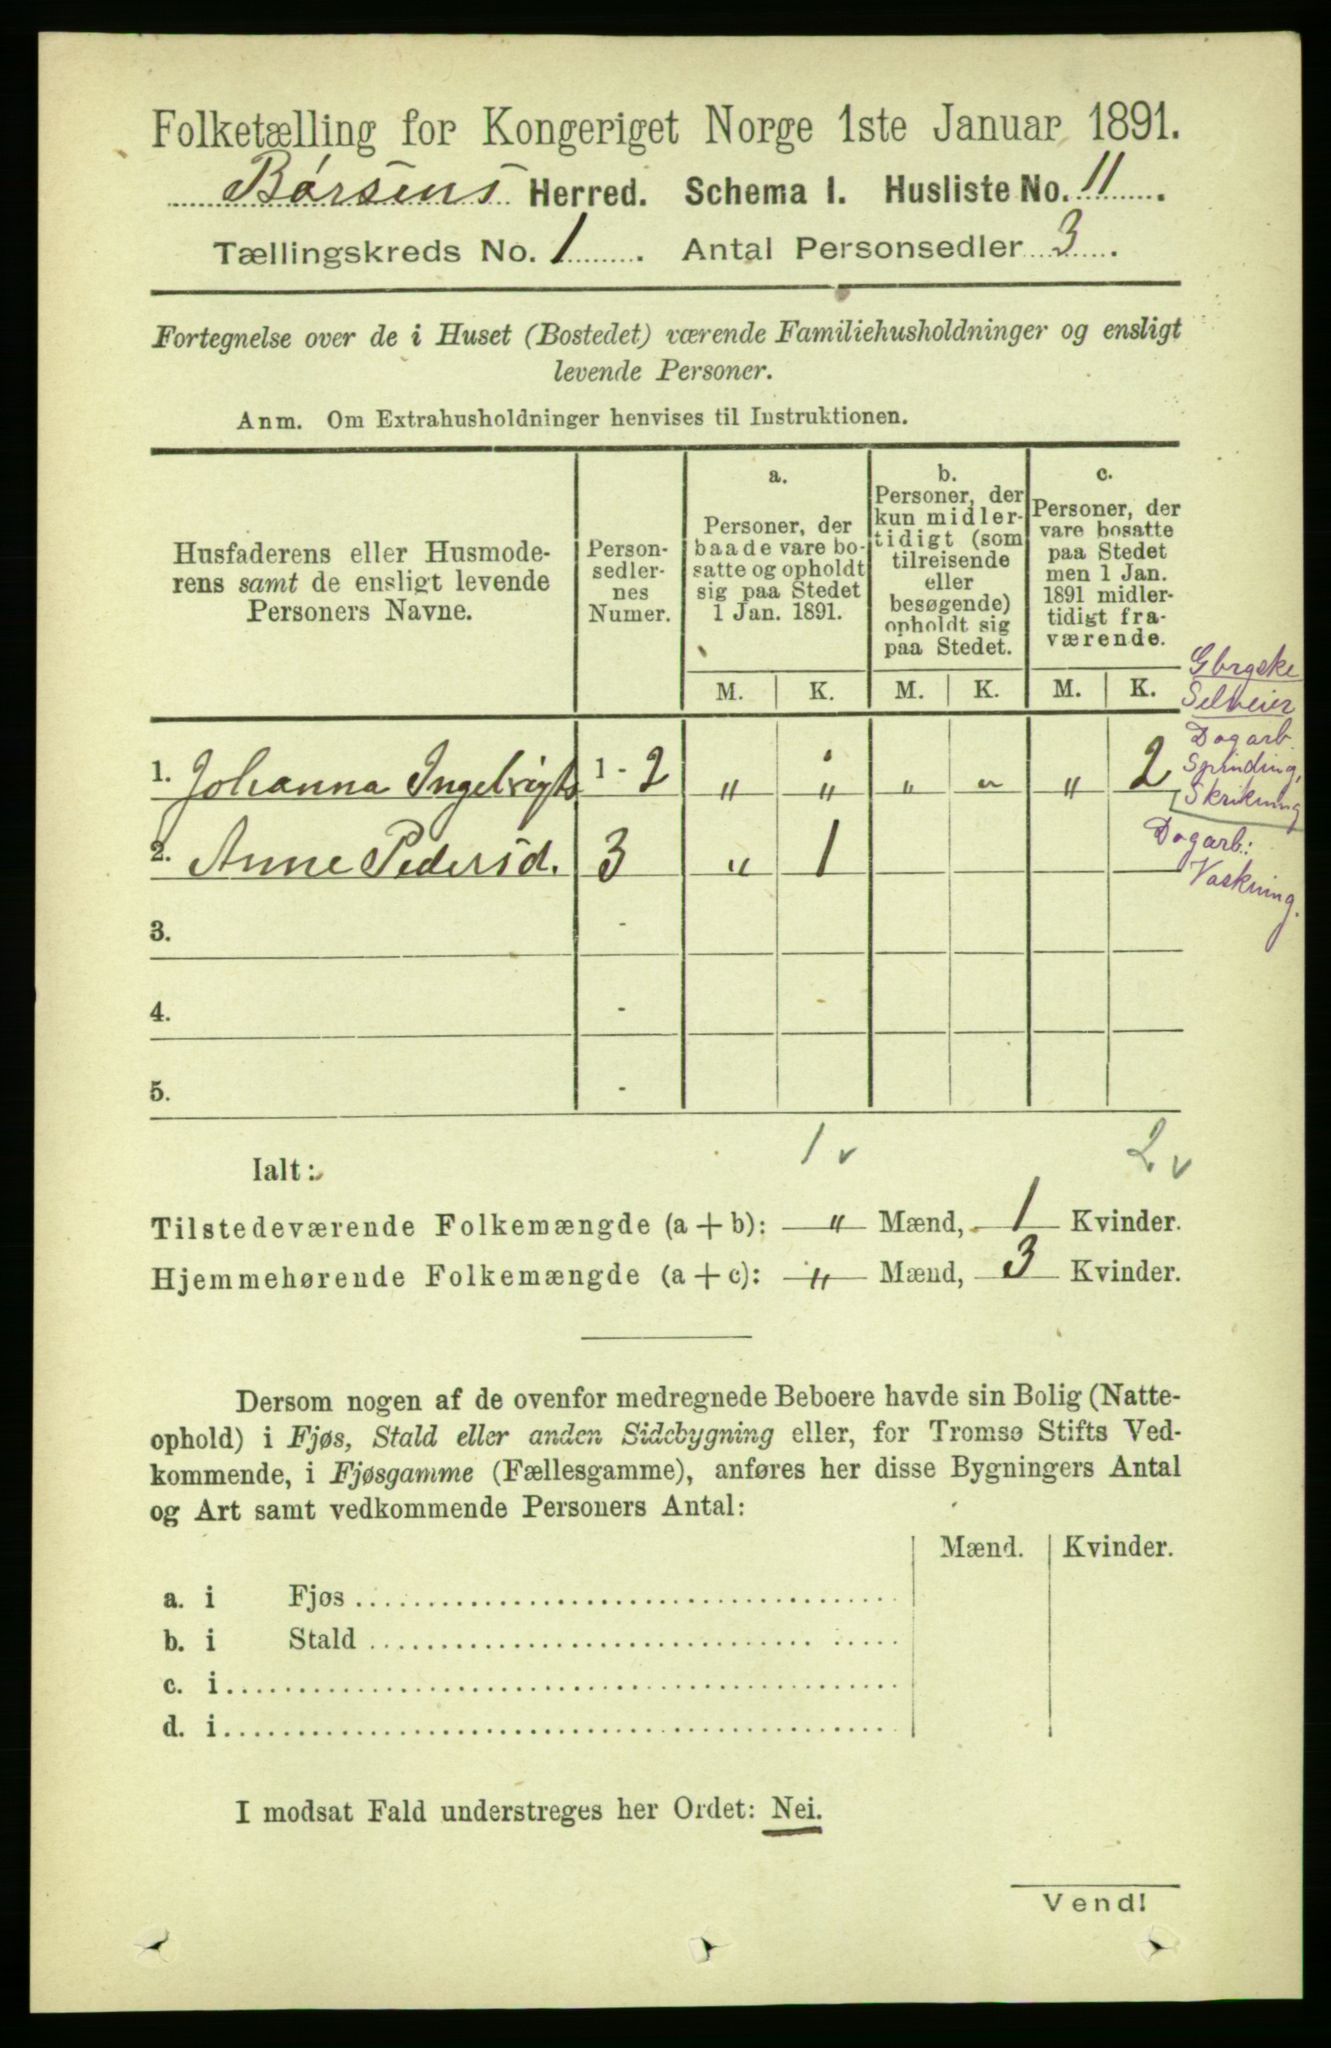 Folketælling for Kongeriget Norge 1ste Januar 1891.
Børsens Herred. Schema 1. Husliste No. 11.
Tællingskreds No. 1. Antal Personsedler 3.
Fortegnelse over de i Huset (Bostedet) værende Familiehusholdninger og ensligt
levende Personer.
Anm. Om Extrahusholdninger henvises til Instruktionen.
Husfaderens eller Husmode-
rens samt de ensligt levende
Personers Navne.
Person-
sedler-
nes
Numer.
a.
Personer, der
baade vare bo-
satte og opholdt
sig paa Stedet
1 Jan. 1891.
b.
Personer, der
kun midler-
tidigt (som
tilreisende
eller
besøgende)
opholdt sig
paa Stedet.
c.
Personer, der
vare bosatte
paa Stedet
men 1 Jan.
1891 midler-
tidigt fra-
værende.
M. K. M. K. M. K.
Gbrgske
Selveier
Dagarb.
Spinding,
1. Johanna Ingebrigts 1 - 2 " " " " " 2
2. Anne Pedersd. 3 " 1
Dagarb.:
Vaskning.
3. -
4. -
5. -
Ialt: 1 v 2 v
Tilstedeværende Folkemængde (a + b): " Mænd, 1 Kvinder.
Hjemmehørende Folkemængde (a + c): " Mænd, 3 Kvinder.
Dersom nogen af de ovenfor medregnede Beboere havde sin Bolig (Natte-
ophold) i Fjøs, Stald eller anden Sidebygning eller, for Tromsø Stifts Ved-
kommende, i Fjøsgamme (Fællesgamme), anføres her disse Bygningers Antal
og Art samt vedkommende Personers Antal:
Mænd. Kvinder.
a. i Fjøs
b. i Stald
c. i
d. i
I modsat Fald understreges her Ordet: Nei.
Vend!